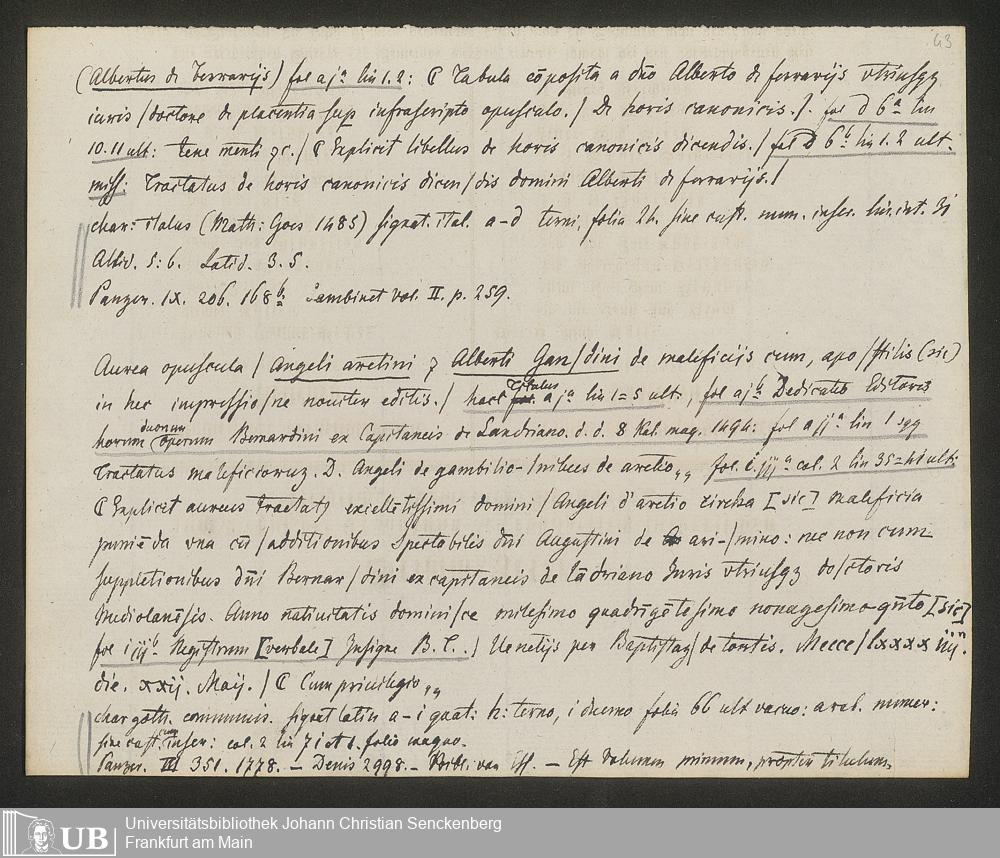 63
(Albertus de Ferrarijs) fol aj a lin 1.2: C Tabula cōposita a dn̄o Alberto de ferrarijs vtriusqz
iuris / doctore de placentia sup infrascripto opusculo. / De horis canonicis. /. fol d 6 a lin
10. 11 ult: tene menti zc. / C Explicit libellus de horis canonicis dicendis. / fol d 6 b lin 1. 2 ult.
miss: Tractatus de horis canonicis dicen / dis domini Alberti de ferrarijs. /
char: italus (Math: Goes 1485) signat. ital. a-d terni, folia 24. sine cust. num. inser. lin. int. 31
Altid. 5:6. Latid. 3. 5.
Panzer. IX. 206. 168 b Lambinet vol. II. p. 259.
Aurea opuscula / Angeli aretini z Alberti Gan / dini de maleficijs cum, apo / stilis (sic)
in hec impressio / ne nouiter editis. / haec Titulus aj a lin 1=5 ult., fol aj b Dedicatio Editoris
horum duorum operum Bernardini ex Capitaneis de Landriano. d. d. 8 Kal. mag. 1494: fol a ij a lin 1 sqq
Tractatus maleficioruz. D. Angeli de gambilio- / nibus de aretio,, fol. i iij a col. 2 lin 35=41 ult:
C Explicit aureus tractatus excellētissimi domini / Angeli d' aretio circha [sic] maleficia
puniēda vna cū / additionibus Spectabilis dn̄i Augustini de ari- / mino: nec non cum
suppletionibus dn̄i Bernar / dini ex capitaneis de lādriano Juris vtriusqz do / ctoris
Mediolanēsis. Anno natiuitatis domini / ce milesimo quadrīgētesimo nonagesimo qrto [sic]
fol i iij b Registrum [verbale] Insigne B. T. .) Uenetijs per Baptistaz / de tortis. Mcccc / lxxxx iiij.
die. xxij. Maij. / C Cum priuilegio,,
char goth. communis. signat latin a-i quat: h: terno, i duerno folia 66 ult vacuo: arab. numer:
sine cust. num inser: col. 2 lin 71 folio magno.
Panzer. III 351. 1778. - Denis 2998. - Bibl. van Ess. - Est volumen primum, propter titulum.
UB Universitätsbibliothek Johann Christian Senckenberg
Frankfurt am Main